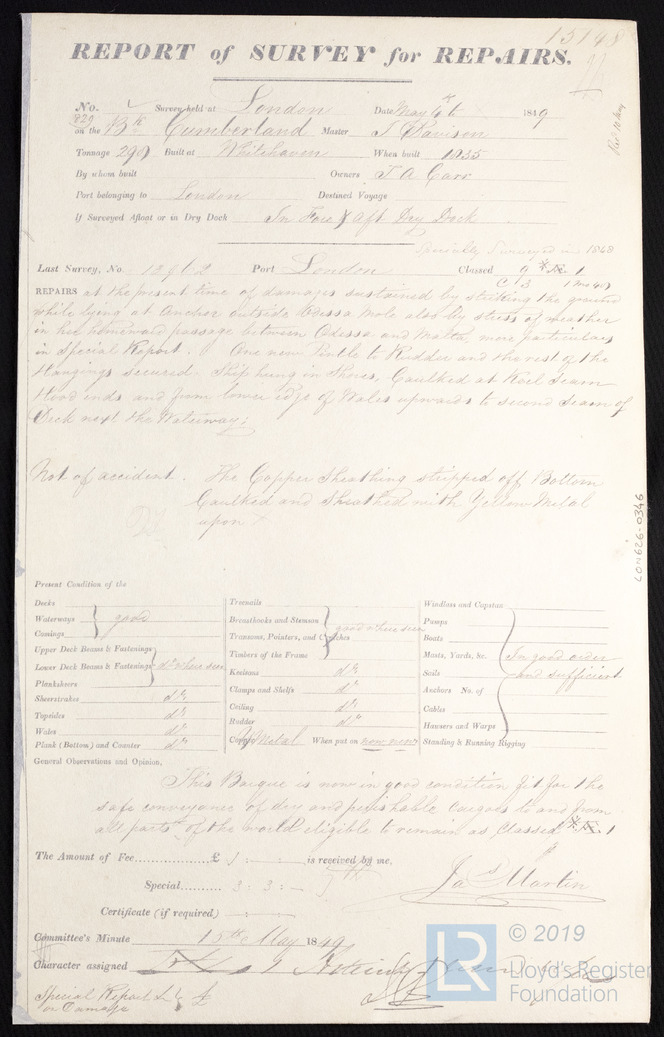 15148
REPORT of SURVEY for REPAIRS.
No. 829 Survey held at London Date May 1849
on the Bk Cumberland Master J Davison
Tonnage 299 Built at Whitehaven When built 1835
By whom built Owners J A Carr
Port belonging to London Destined Voyage
If Surveyed Afloat or in Dry Dock In Fore & Aft Dry Dock
Specially Surveyed in 1848
Last Survey, No. Port London Classed
REPAIRS at the present time of damages sustained by striking the ground
while lying at Anchor outside Odessa Mole also by stress of weather
in her homeward passage between Odessa and Malta, more particulars
in Special Report. One new Pintle to Rudder and the rest of the
Hangings secured. Ship hung in Shores, Caulked at Keel Seam
Hood ends and from lower edge of Wales upwards to second Seam of
Deck next the Waterway.
Not of accident. The Copper Sheathing stripped off Bottom
Caulked and Sheathed with Yellow Metal
upon
LON626-0346
Present Condition of the
Decks
Waterways good
Comings
Upper Deck Beams & Fastenings
Lower Deck Beams & Fastenings do where seen
Planksheers
Sheerstrakes do
Topsides do
Wales do
Plank (Bottom) and Counter do
Treenails
Breasthooks and Stemson good where seen
Transoms, Pointers, and Crutches
Timbers of the Frame
Keelsons do
Clamps and Shelfs do
Ceiling do
Rudder do
Copper Y Metal When put on now new
Windlass and Capstan
Pumps
Boats
Masts, Yards, &c. In good order
Sails and sufficient
Anchors No. of
Cables
Hausers and Warps
Standing & Running Rigging
General Observations and Opinion,
This Barque is now in good condition fit for the
safe conveyance of dry and perishable cargoes to and from
all parts of the world eligible to remain as Classed
The Amount of Fee £ 1 : - : - is received by me,
Special 3 : 3 : - Jas Martin
Certificate (if required)
Committee's Minute 15th May 1849
Character assigned
Special Report
on Damage
LR © 2019
Lloyd's Register
Foundation